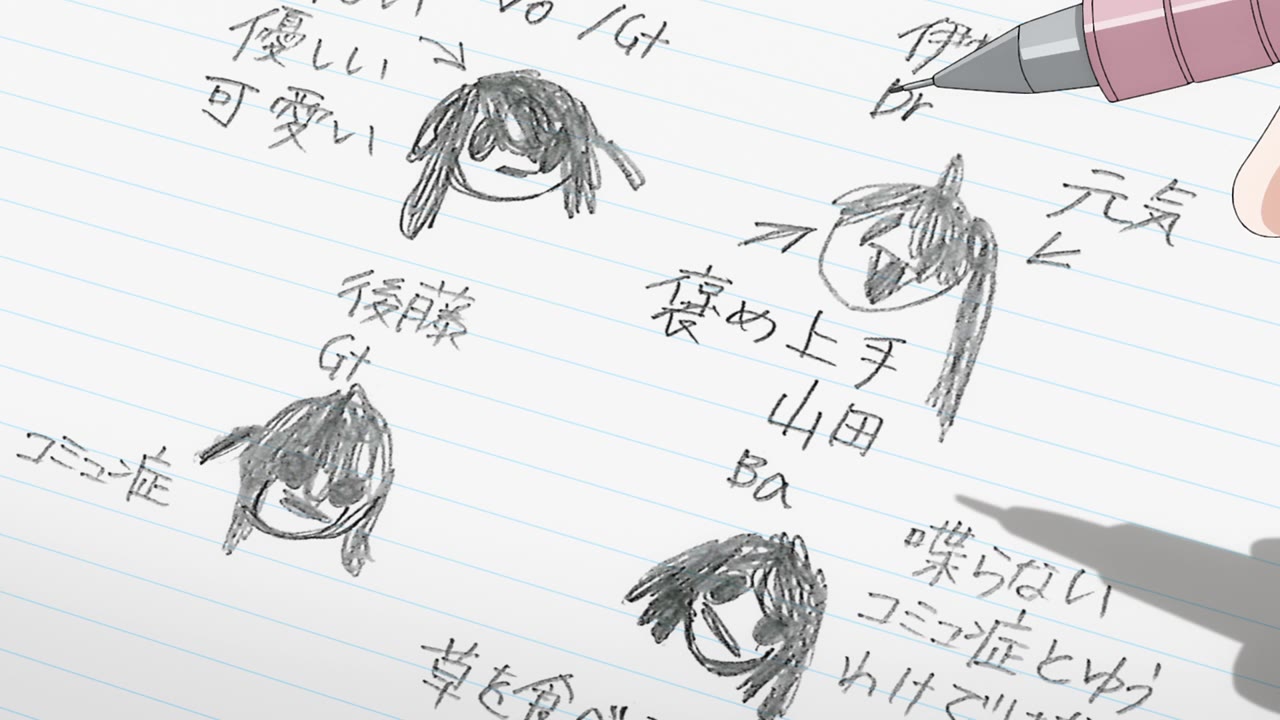 Vo/Gt
優しい
可愛い
Dr
元気
褒め上手
後藤
Gt
コミュ症
山田
Ba
喋らない
コミュ症とゆう
草を食べ